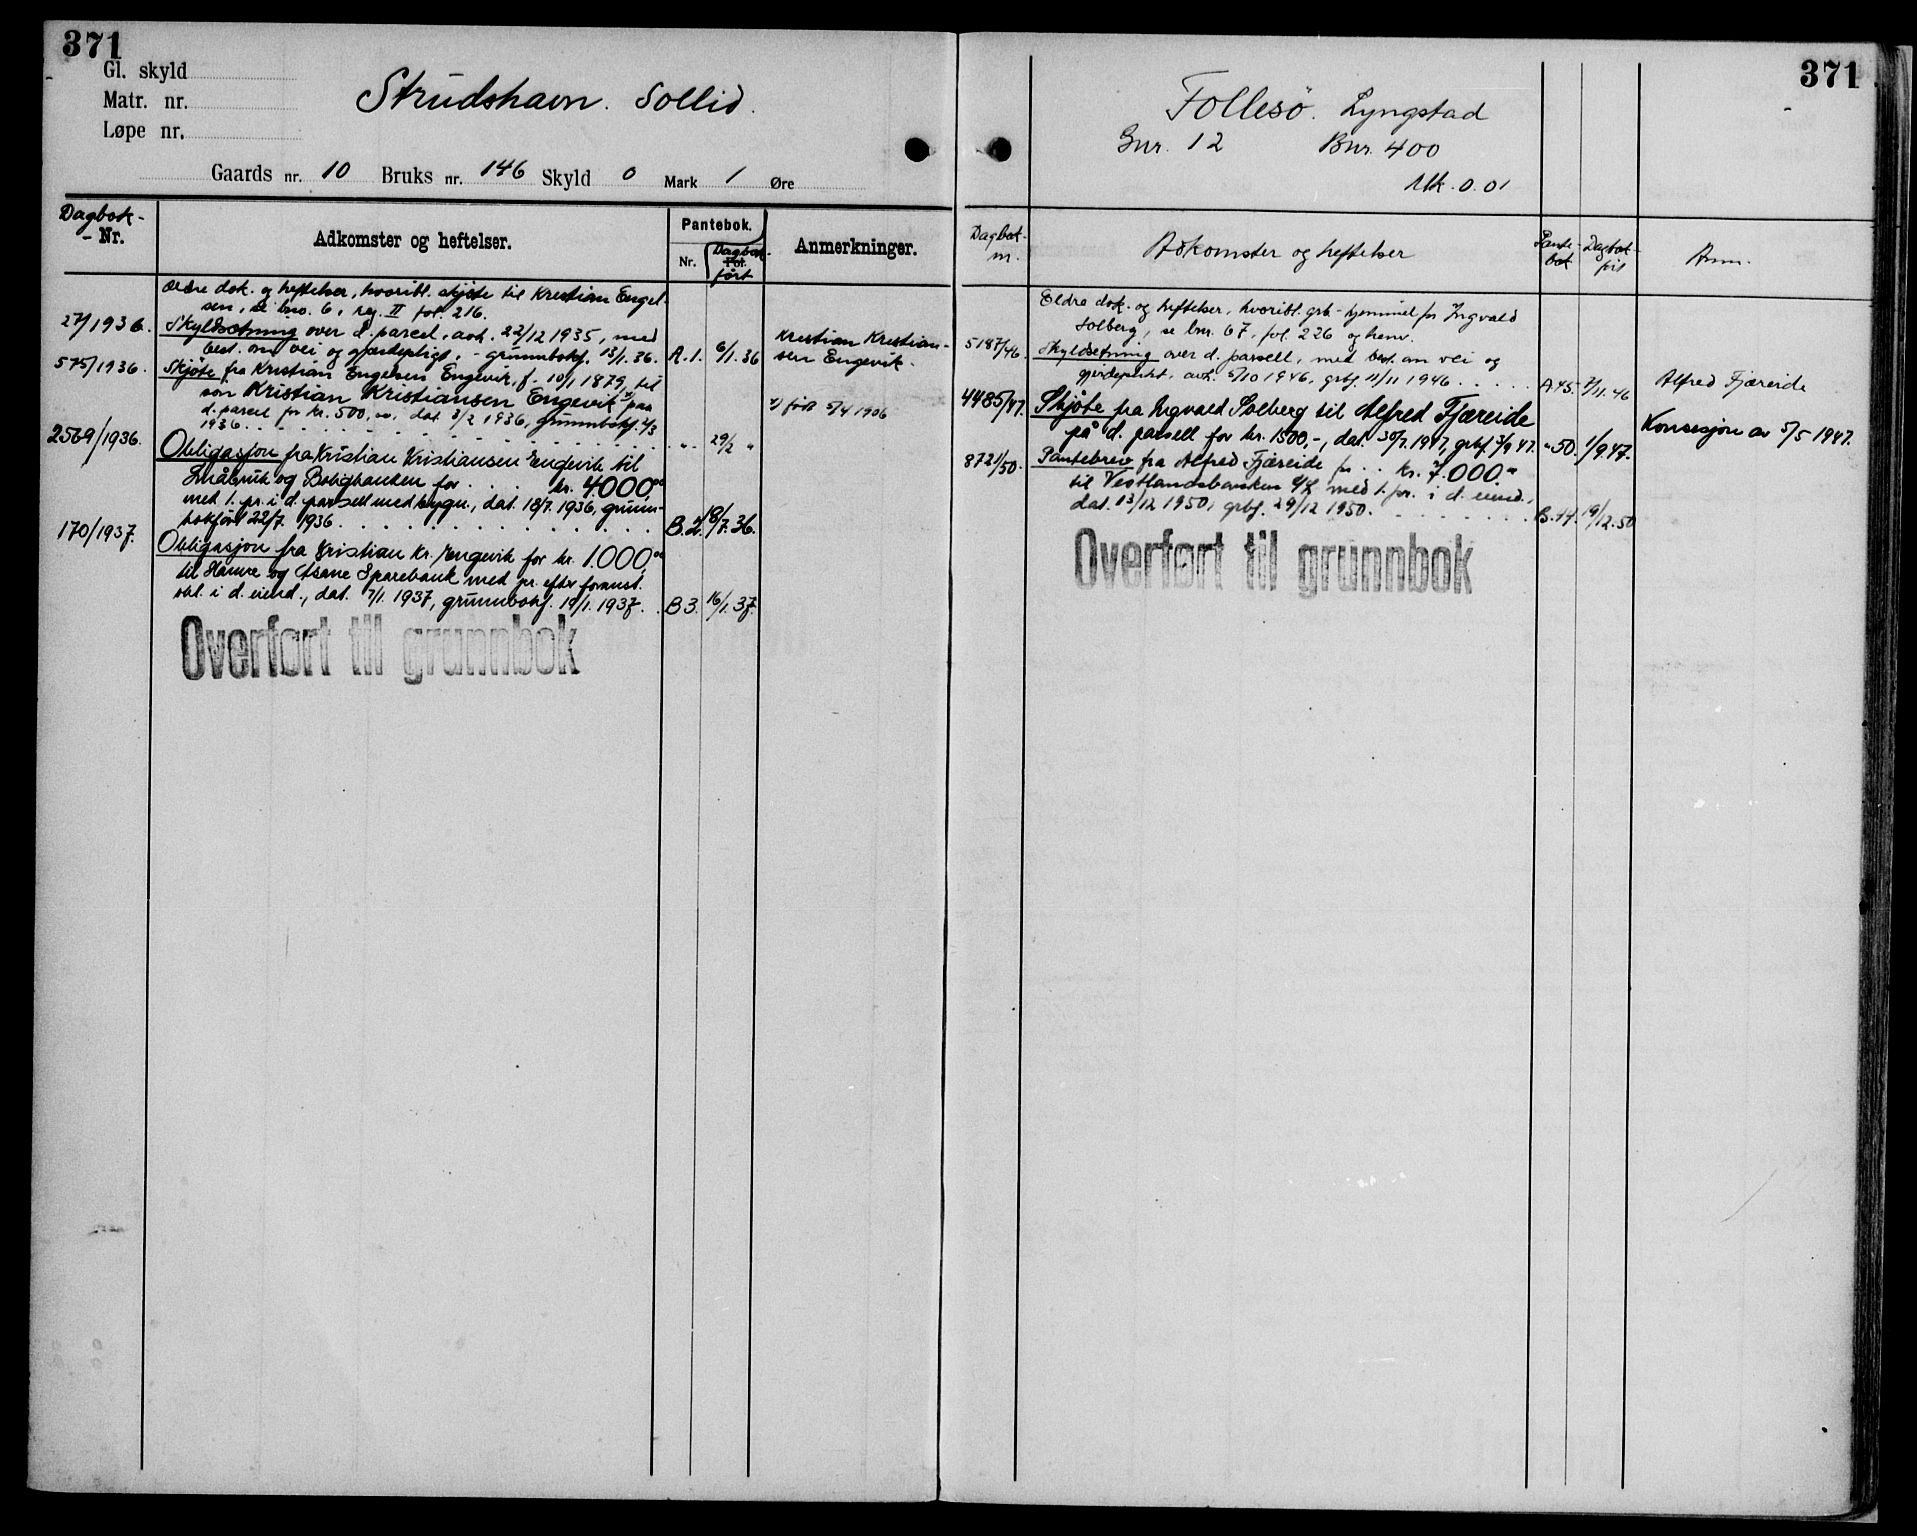 371
Gl. skyld
Matr. nr.
Løpe nr.
Strudshavn. Sollid.
Gaards nr. 10 Bruks nr. 146 Skyld 0 Mark 1 Øre
Dagbok-
-Nr.
Adkomster og heftelser.
Pantebok.
Nr.
Fol.
Dagbok-
ført
Anmerkninger.
Ældre dok. og heftelser, hvoribl. skjöte til Kristian Engel-
sen, se bno. 6, reg. II fol. 216.
27/1936. Skyldsetning over d. parcel, avh. 22/12 1935, med
best. om vei og gjærdepligt, - grunnbokf. 13/1. 36. A. 1. 6/1. 36
Kristian Kristian-
sen Engevik.
575/1936. Skjöte fra Kristian Engelsen Engevik, f. 10/1 1879, til
sön Kristian Kristiansen Engevik paa
d. parcel for kr. 500,00, dat 3/2 1936, grunnbokf. 4/3
1936. " 29/2 "
f) född 5/4 1906
2569/1936. Obligasjon fra Kristian Kristiansen Engevik til
Småbruk og Boligbanken for . . . kr. 4000,00
med 1. pr. i d. parsell med bygn., dat. 18/7. 1936, grunn-
bokført 22/7. 1936. B. 2. 18/7. 36.
170/1937. Obligasjon fra Kristian Kr. Engevik for kr. 1.000,00
til Hamre og Åsane Sparebank med pr. efter foranst.
obl. i d. eiend., dat. 7/1. 1937, grunnbokf. 19/1. 1937. B 3. 16/1. 37.
Overført til grunnbok
371
Follesö. Lyngstad
Gnr. 12 Bnr. 400
Mk. 0.01
Dagbok-
nr.
Adkomster og heftelser
Pante-
bok
Dagbok-
ført
Anm.
Eldre dok. og heftelser, hvoribl. grb-hjemmel for Ingvald
Solberg, se bnr. 67, fol. 226 og henv.
5187/46. Skyldsetning over d. parsell, med best. om vei og
gjerdeplikt, avh. 5/10 1946, grbf. 11/11 1946 . . . . . A 45. 7/11. 46
Alfred Fjæreide
4485/47. Skjöte fra Ingvald Solberg til Alfred Fjæreide
på d. parsell for kr. 1500,-, dat. 30/7. 1947, grbf. 3/9 47. " 50. 1/9 47.
Konsesjon av 5/5 1947.
8721/50. Pantebrev fra Alfred Fjæreide for . . kr. 7.000,-
til Vestlandsbanken A/L med 1. pr. i d. eiend.,
dat. 13/12 1950, grbf. 29/12 1950. B. 44. 19/12. 50
Overført til grunnbok